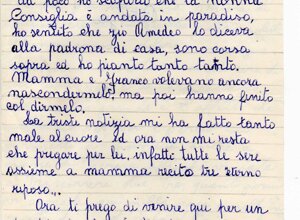 da poco ho scoperto che la nonna
Consiglia è andata in paradiso,
ho sentito che zio Amedeo lo diceva
alla padrona di casa, sono corsa
sopra ed ho pianto tanto tanto.
Mamma e Franco volevano ancora
nascondermelo, ma poi hanno finito
col dirmelo.
La triste notizia mi ha fatto tanto
male al cuore ed ora non mi resta
che pregare per lei, infatti tutte le sere
assieme a mamma recito tre eterno
riposo...
Ora ti prego di venire qui per un